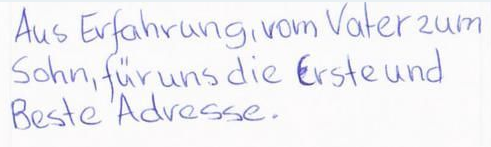 Aus Erfahrung, vom Vater zum
Sohn, für uns die Erste und
Beste Adresse.